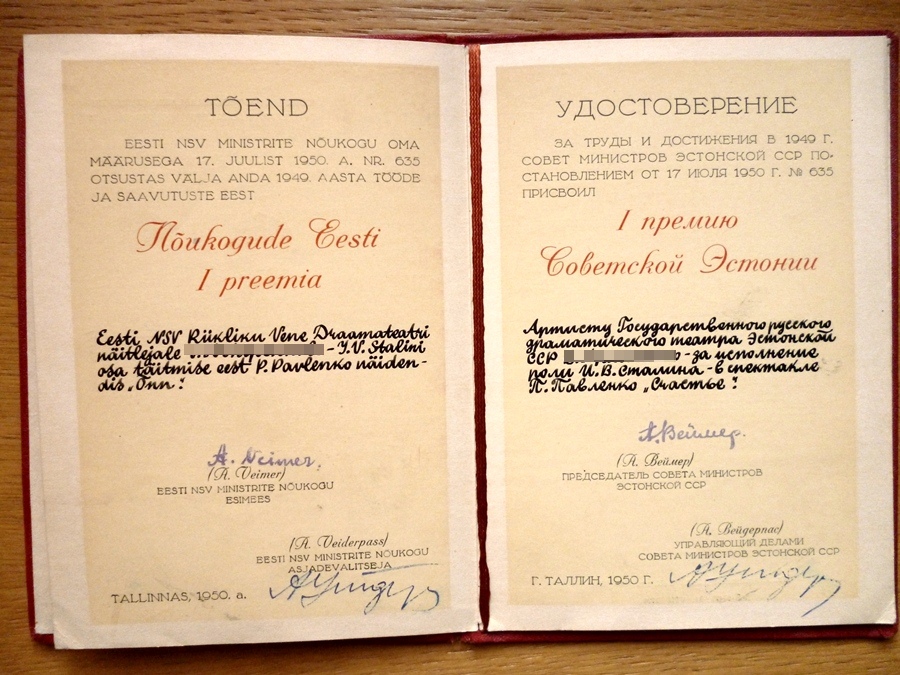 TÕEND
EESTI NSV MINISTRITE NÕUKOGU OMA
MÄÄRUSEGA 17. JUULIST 1950. A. NR. 635
OTSUSTAS VÄLJA ANDA 1949. AASTA TÖÖDE
JA SAAVUTUSTE EEST
Nõukogude Eesti
I preemia
Eesti NSV Riikliku Vene Draamateatri
näitlejale - J.V. Stalini
osa täitmise eest P. Pavlenko näiden-
dis „Õnn".
A. Veimer.
(A. Veimer)
EESTI NSV MINISTRITE NÕUKOGU
ESIMEES
(A. Veiderpass)
EESTI NSV MINISTRITE NÕUKOGU
ASJADEVALITSEJA
TALLINNAS, 1950. a.
УДОСТОВЕРЕНИЕ
ЗА ТРУДЫ И ДОСТИЖЕНИЯ В 1949 Г.
СОВЕТ МИНИСТРОВ ЭСТОНСКОЙ ССР ПО-
СТАНОВЛЕНИЕМ ОТ 17 ИЮЛЯ 1950 Г. № 635
ПРИСВОИЛ
I премию
Советской Эстонии
Артисту Государственного русского
драматического театра Эстонской
ССР - за исполнение
роли И.В. Сталина - в спектакле
П. Павленко „Счастье".
А. Веймер.
(А. Веймер)
ПРЕДСЕДАТЕЛЬ СОВЕТА МИНИСТРОВ
ЭСТОНСКОЙ ССР
(А. Вейдерпас)
УПРАВЛЯЮЩИЙ ДЕЛАМИ
СОВЕТА МИНИСТРОВ ЭСТОНСКОЙ ССР
Г. ТАЛЛИН, 1950 Г.